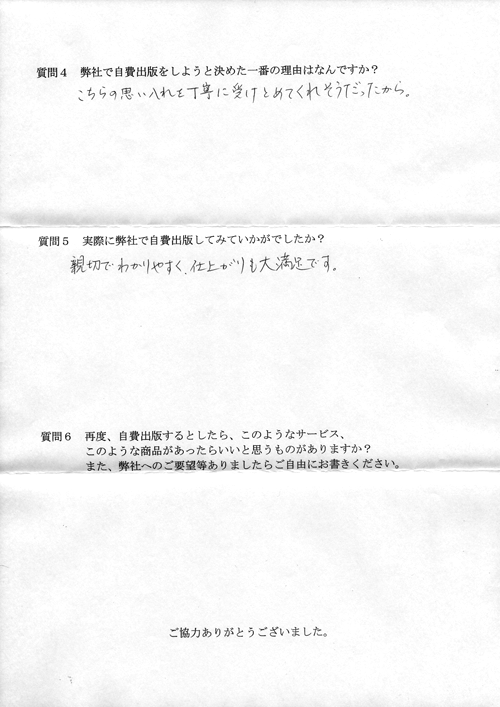 質問４ 弊社で自費出版をしようと決めた一番の理由はなんですか？
こちらの思い入れを丁寧に受けとめてくれそうだったから。
質問５ 実際に弊社で自費出版してみていかがでしたか？
親切でわかりやすく、仕上がりも大満足です。
質問６ 再度、自費出版するとしたら、このようなサービス、
このような商品があったらいいと思うものがありますか？
また、弊社へのご要望等ありましたらご自由にお書きください。
ご協力ありがとうございました。